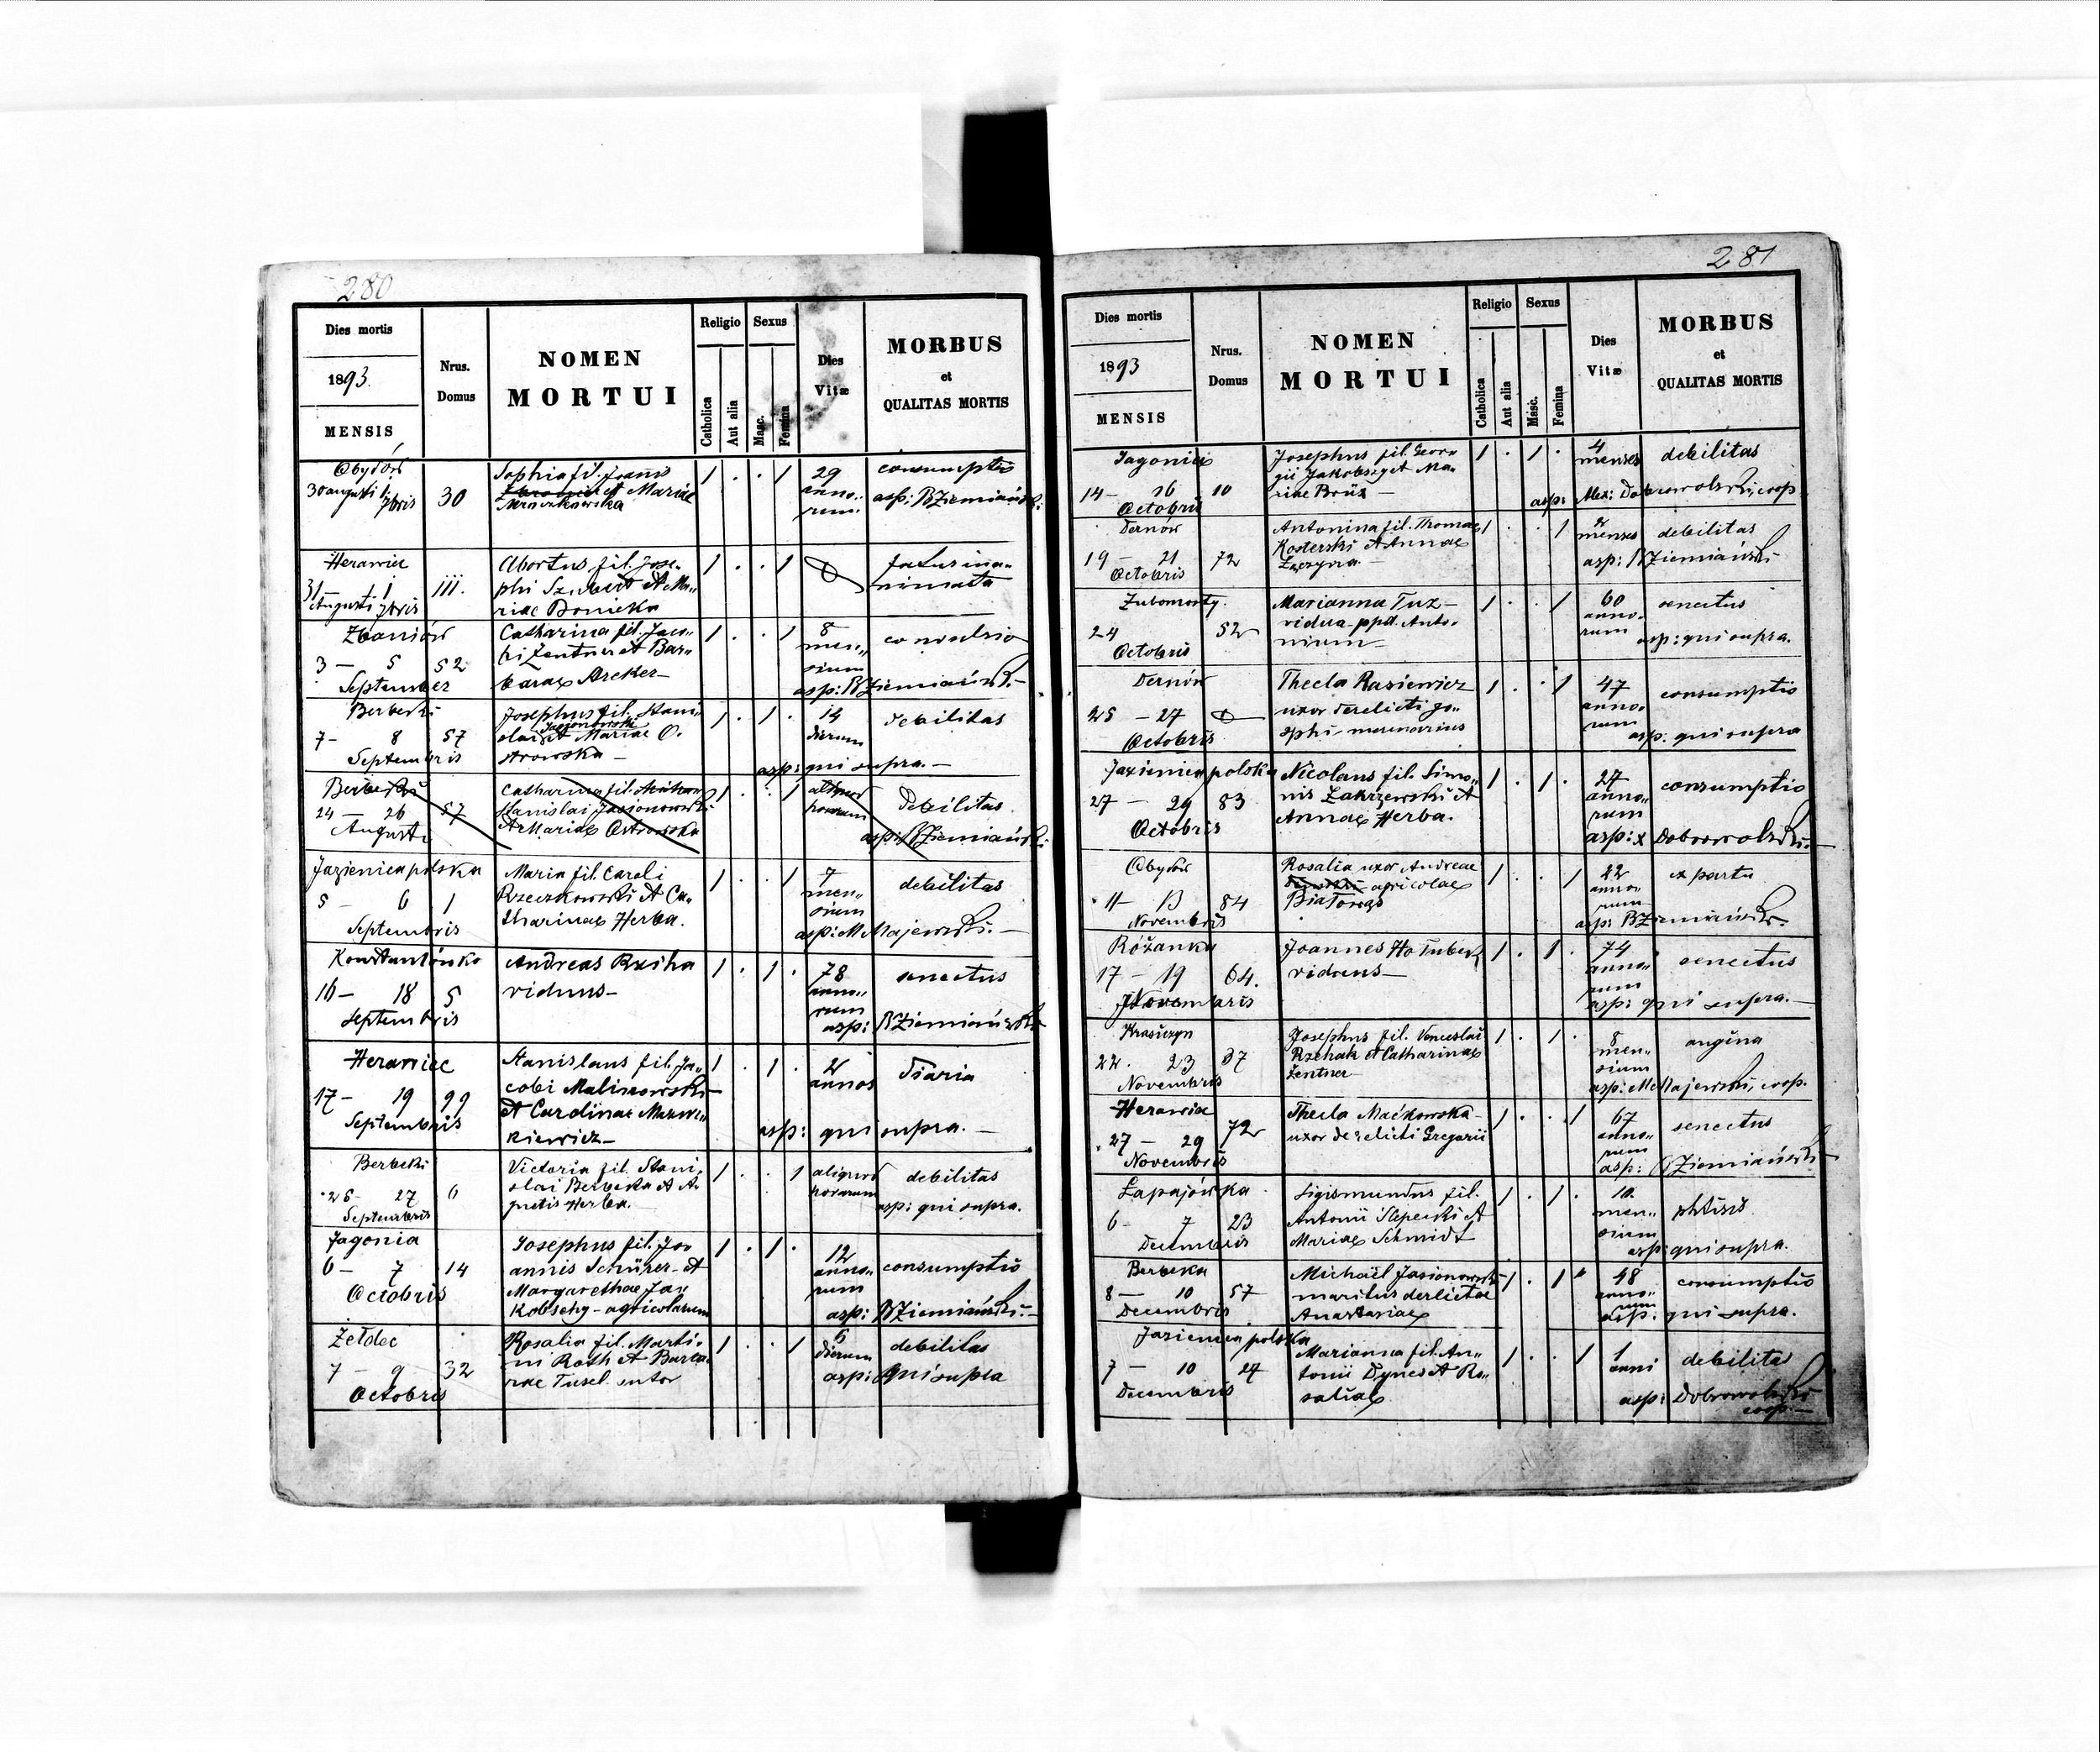 280
Dies mortis
1893.
MENSIS
Nrus.
Domus
NOMEN
MORTUI
Religio
Catholica
Aut alia
Sexus
Masc.
Femina
Dies
Vitæ
MORBUS
et
QUALITAS MORTIS
Obydów
30 augusti 1 7bris
30
Sophia fil. Joannis
et Mariae
29
anno„
rum
consumptio
asp: BZiemiański
Herawiec
31 — 1
Augusti 7bris
111.
Abortus fil. Jose„
phi Szubert et Ma„
riae Bonicka
faetus ina„
nimata
Zboniów
3 — 5
52
September
Catharina fil. Jaco„
bi Zentner et Bar„
barae Arcker —
8
men„
sium
convulsio
asp: BZiemiański —
Berbeki
7 — 8
57
Septembris
Josephus fil. Stani„
slai Jasionowski et Mariae O.
strowska —
14
dierum
debilitas
asp: qui supra. —
Berbeki
24 — 26
57
Augusti
Catharina fil.
Stanislai Jasionowski
et Mariae Ostrowska
aliquot
horarum
debilitas
asp: BZiemiański
Jazienica polska
5 — 6
1
Septembris
Maria fil. Caroli
Rzeczkowski et Ca„
tharinae Herba.
7
men„
sium
debilitas
asp: MMajewski. —
Konstantówka
16 — 18
5
Septembris
Andreas Rziha
viduus —
78
anno„
rum
senectus
asp: BZiemiański
Herawiec
17 — 19
99
Septembris
Stanislaus fil. Ja„
cobi Malinowski
et Carolinae Mazur„
kiewicz —
2
annos
diaria
asp: qui supra. —
Berbeki
26 — 27
6
Septembris
Victoria fil. Stani„
slai Berbeka et A„
gnetis Herba.
aliquot
horarum
debilitas
asp: qui supra.
Jagonia
6 — 7
14
Octobris
Josephus fil. Jo„
annis Schürer et
Margarethae Ja„
kobschy — agricolarum
12
anno„
rum
consumptio
asp: BZiemiański —
Żełdec
7 — 9
32
Octobris
Rosalia fil. Marti„
ni Roth et Barba„
rae Tusel sutor
6
dierum
debilitas
asp: qui supra
281
Dies mortis
1893
MENSIS
Nrus.
Domus
NOMEN
MORTUI
Religio
Catholica
Aut alia
Sexus
Masc.
Femina
Dies
Vitæ
MORBUS
et
QUALITAS MORTIS
Jagonia
14 — 16
10
Octobris
Josephus fil. Geor„
gii Jakobszy et Ma„
riae Brüx —
4
menses
debilitas
asp: Alex: Dobrowolski, coop.
Dernów
19 — 21
72
Octobris
Antonina fil. Thomae
Kosterski et Annae
menses
debilitas
asp: BZiemiański
Żubomosty.
24
52
Octobris
Marianna Tuz —
vidua ppd. Anto„
nium —
60
anno„
rum
senectus
asp: qui supra.
Dernów
25 — 27
Octobris
Thecla Rusiewicz
uxor derelicti Jo„
sphi — mercenarius
47
anno„
rum
consumptio
asp: qui supra
Jazienica polska
27 — 29
83
Octobris
Nicolaus fil. Simo„
nis Zakrzewski et
Annae Herba.
27
anno„
rum
consumptio
asp: x Dobrowolski. —
Obydów
11 — 13
84
Novembris
Rosalia uxor Andreae
agricolae
Białowąs
22
anno„
rum
ex partu
asp: BZiemiański.
Różanka
17 — 19
64.
Novembris
Joannes Hołubek
viduus —
74
anno„
rum
senectus
asp: qui supra. —
Krasiczyn
22. 23
37
Novembris
Josephus fil. Venceslai
Rzehak et Catharinae
Zentner
8
men„
sium
angina
asp: MMajewski, coop.
Herawiec
27 — 29
72
Novembris
Thecla Maćkowska
uxor derelicti Gregorii
67
anno„
rum
senectus
asp: BZiemiański —
Łapajówka
6 — 7
23
Decembris
Sigismundus fil.
Antonii Ślepecki et
Mariae Schmidt
10.
men„
sium
phtisis
asp: qui supra.
Berbeka
8 — 10
57
Decembris
Michaël Jasionowski
maritus derlictae
Anastasiae
48
anno„
rum
consumptio
asp: qui supra.
Jazienica polska
7 — 10
24
Decembris
Marianna fil. An„
tonii Dynes et Ro„
saliae
1
anni
debilitas
asp: Dobrowolski
coop. —